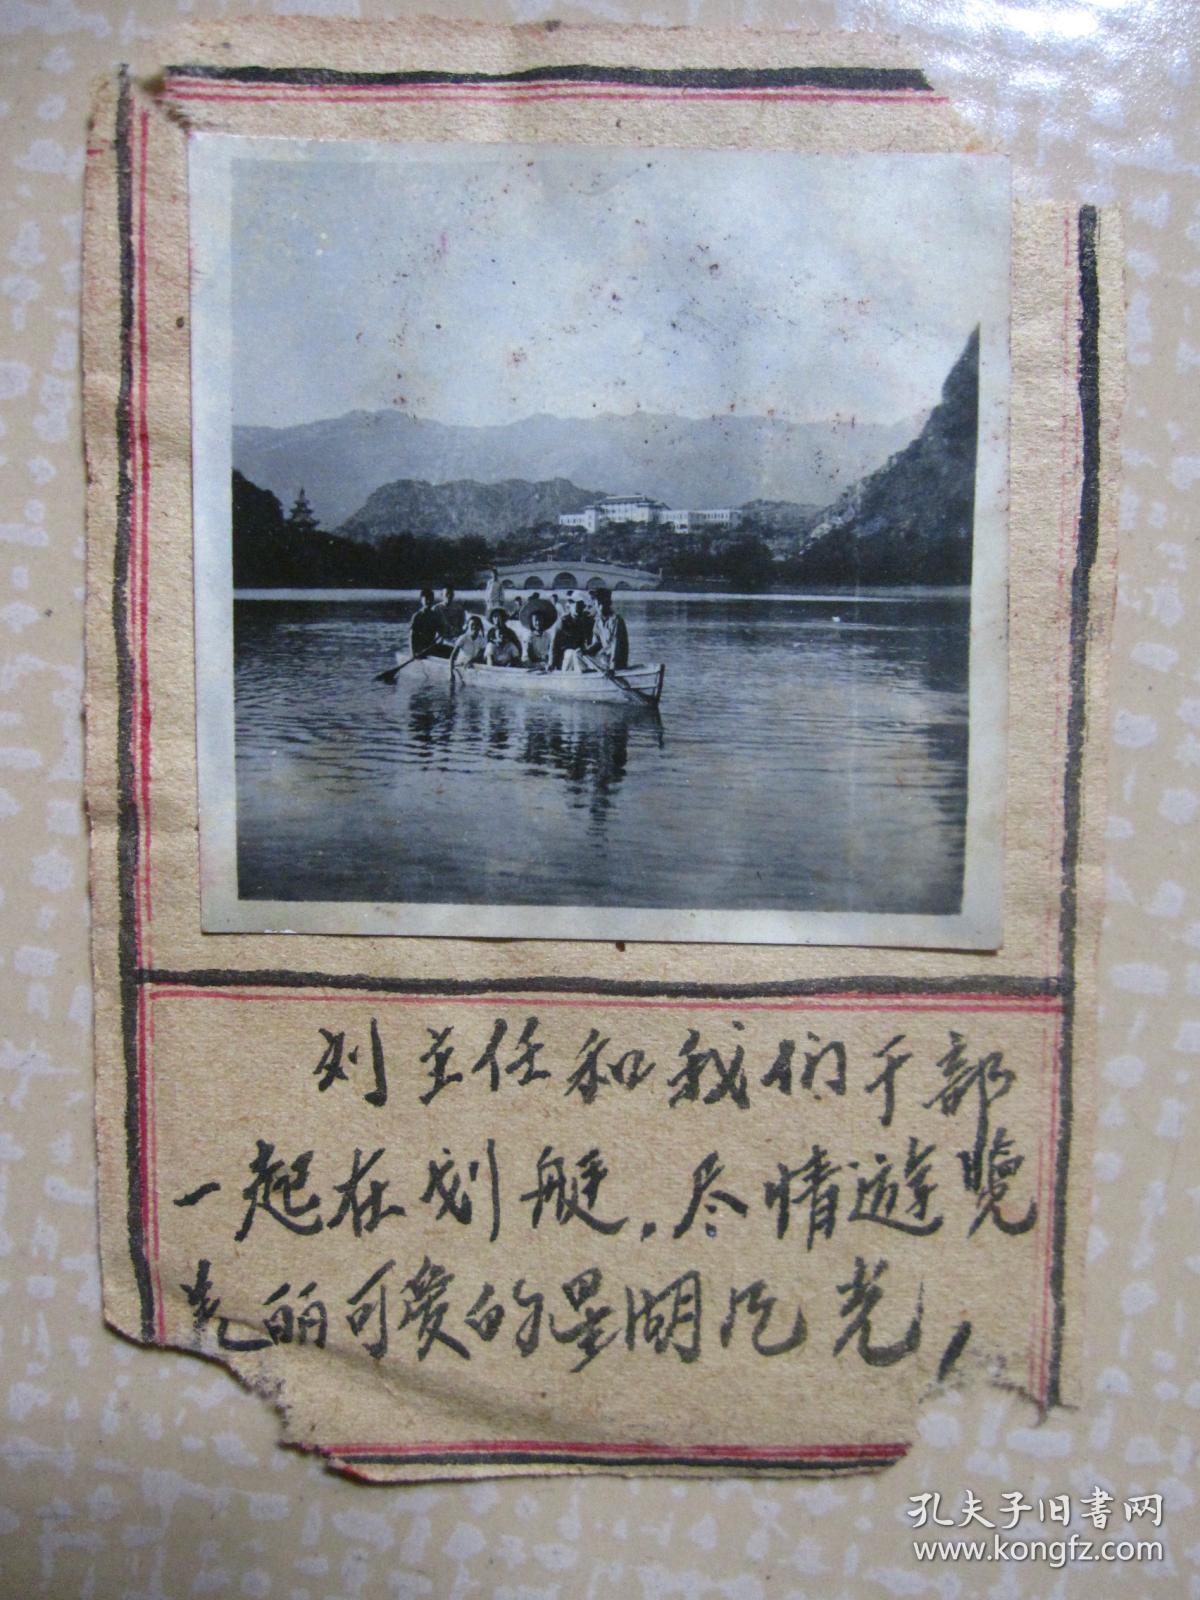 刘主任和我们干部
一起在划艇．尽情遊览
美丽可爱的星湖风光，
孔夫子旧書网
www.kongfz.com